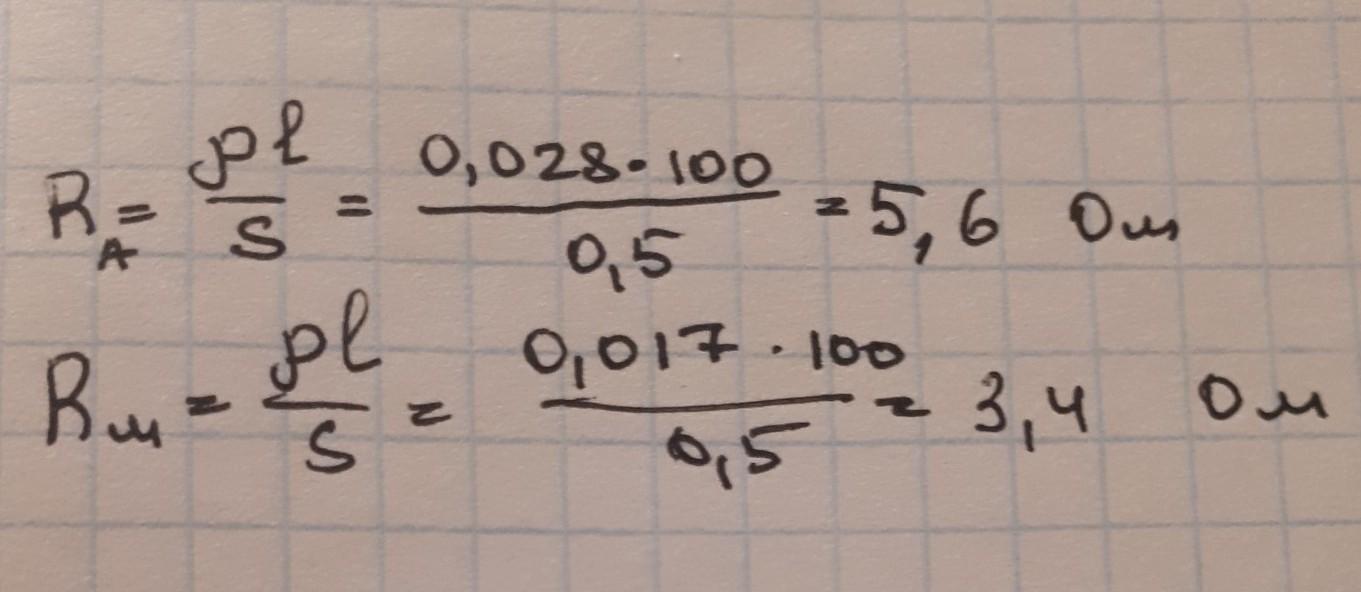 R_A = ρl/S = 0,028·100/0,5 = 5,6 Ом
R_м = ρl/S = 0,017·100/0,5 = 3,4 Ом